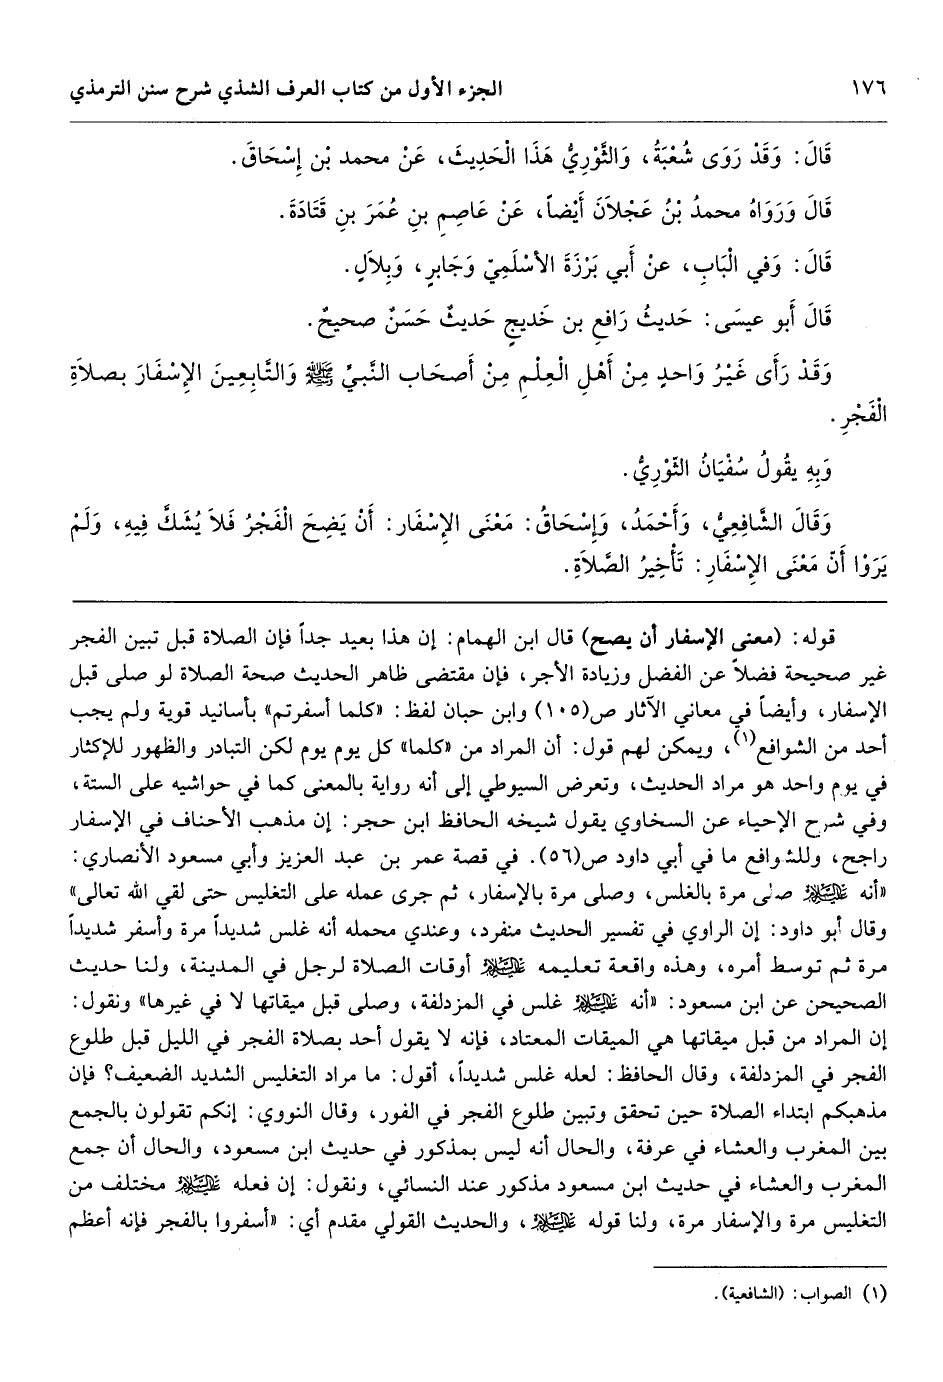 ١٧٦ الجزء الأول من كتاب العرف الشذي شرح سنن الترمذي
قَالَ: وَقَدْ رَوَى شُعْبَةُ، وَالثَّوْرِيُّ هَذَا الْحَدِيثَ، عَنْ محمد بْنِ إِسْحَاقَ.
قَالَ وَرَوَاهُ محمدُ بْنُ عَجْلاَنَ أَيْضاً، عَنْ عَاصِمِ بنِ عُمَرَ بنِ قَتَادَةَ.
قَالَ: وَفي الْبَابِ، عنْ أَبي بَرْزَةَ الأسْلَمِيّ وَجَابرٍ، وَبِلاَلٍ.
قَالَ أَبو عيسَى: حَديثُ رَافعِ بن خَديجٍ حَديثٌ حَسَنٌ صحيحٌ.
وَقَدْ رَأَى غَيْرُ وَاحدٍ مِنْ أَهْلِ الْعِلْمِ مِنْ أَصحَاب النَّبيِّ ﷺ وَالتَّابِعينَ الإِسْفَارَ بصلاَةِ
الْفَجْرِ.
وَبِهِ يقُولُ سُفْيَانُ الثّوْرِيُّ.
وَقَالَ الشَّافِعِيُّ، وَأَحْمَدُ، وَإِسْحَاقُ: مَعْنَى الإِسْفَار: أَنْ يَضِحَ الْفَجْرُ فَلاَ يُشَكَّ فِيهِ، وَلَمْ
يَرَوْا أَنّ مَعْنَى الإِسْفَارِ: تَأْخِيرُ الصَّلاَةِ.
قوله: (معنى الإسفار أن يصح) قال ابن الهمام: إن هذا بعيد جداً فإن الصلاة قبل تبين الفجر
غير صحيحة فضلاً عن الفضل وزيادة الأجر، فإن مقتضى ظاهر الحديث صحة الصلاة لو صلى قبل
الإسفار، وأيضاً في معاني الآثار ص(١٠٥) وابن حبان لفظ: «كلما أسفرتم» بأسانيد قوية ولم يجب
أحد من الشوافع(١)، ويمكن لهم قول: أن المراد من «كلما» كل يوم يوم لكن التبادر والظهور للإكثار
في يوم واحد هو مراد الحديث، وتعرض السيوطي إلى أنه رواية بالمعنى كما في حواشيه على الستة،
وفي شرح الإحياء عن السخاوي يقول شيخه الحافظ ابن حجر: إن مذهب الأحناف في الإسفار
راجح، وللشوافع ما في أبي داود ص(٥٦). في قصة عمر بن عبد العزيز وأبي مسعود الأنصاري:
«أنه عليه السلام صلى مرة بالغلس، وصلى مرة بالإسفار، ثم جرى عمله على التغليس حتى لقي الله تعالى»
وقال أبو داود: إن الراوي في تفسير الحديث منفرد، وعندي محمله أنه غلس شديداً مرة وأسفر شديداً
مرة ثم توسط أمره، وهذه واقعة تعليمه عليه السلام أوقات الصلاة لرجل في المدينة، ولنا حديث
الصحيحن عن ابن مسعود: «أنه عليه السلام غلس في المزدلفة، وصلى قبل ميقاتها لا في غيرها» ونقول:
إن المراد من قبل ميقاتها هي الميقات المعتاد، فإنه لا يقول أحد بصلاة الفجر في الليل قبل طلوع
الفجر في المزدلفة، وقال الحافظ: لعله غلس شديداً، أقول: ما مراد التغليس الشديد الضعيف؟ فإن
مذهبكم ابتداء الصلاة حين تحقق وتبين طلوع الفجر في الفور، وقال النووي: إنكم تقولون بالجمع
بين المغرب والعشاء في عرفة، والحال أنه ليس بمذكور في حديث ابن مسعود، والحال أن جمع
المغرب والعشاء في حديث ابن مسعود مذكور عند النسائي، ونقول: إن فعله عليه السلام مختلف من
التغليس مرة والإسفار مرة، ولنا قوله عليه السلام، والحديث القولي مقدم أي: «أسفروا بالفجر فإنه أعظم
(١) الصواب: (الشافعية).